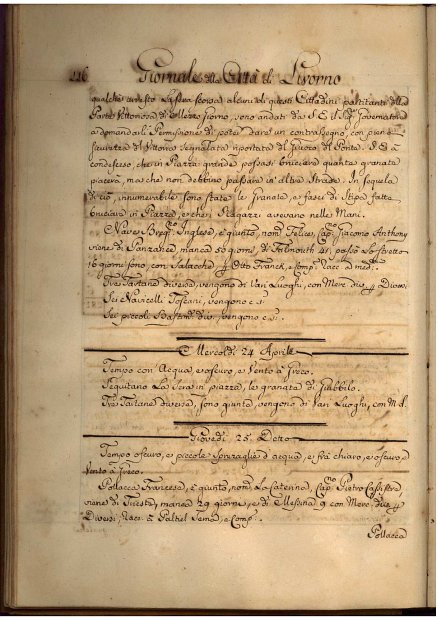 116 Giornale della Città di Livorno
qualche arresto. La sera scorsa alcuni di questi Cittadini partitanti della
Parte Vittoriosa di Mezzo giorno, sono andati da S. E. il Sigr. Governatore
a domandarli Permissione di poter dare un contrassegno, con pieno
sicurezza del Vittorio segnalata riportata del Giuoco di Ponte. S. E. à
condesceso, che in Piazza grande possasi bruciare quanta granata
piacerà, ma che non debbino pressare in altre Strade. In sequela
di ciò, innumerabile sono state le Granata, e fasci di Stipa fatta
bruciare in Piazza, e che i Ragazzi avevano nelle Mani.
Nave Bregno Inglese, è giunto, nomo Felice, Capno Giacomo Anthony
viene di Panzance manca 50 giorni, di Falmouth 21, passò lo stretto
16 giorni sono, con Salacche
Otto Franck, e Comp. racc. a med.
Tre Tartane diverse, vengono di Vari Luoghi, con Merc. div. Diversi
Sei Navicelli Toscani, vengono e si
Sei piccoli Bastimti div., vengono e si.
Mercoldi 24 Aprile
Tempo con Acqua, e oscuro, e Vento à Greco.
Seguitano La Sera in piazza, le granata di Giubbilo.
Tre Tartane diverse, sono giunte, vengono di Vari Luoghi, con M. d.
Giovedi 25 Detto
Tempo oscuro, e piccole spruzzaglie d'acqua, e frà chiaro, e oscuro, e
Vento à Greco.
Pollacca Francesa, è giunta, nomta La Caterina, Capno Pietro
viene di Trieste, manca 29 giorni, e di Messina 9 con Merc. div.
Diversi, racc. à Paltiel Semà, e Comp.
Pollacca